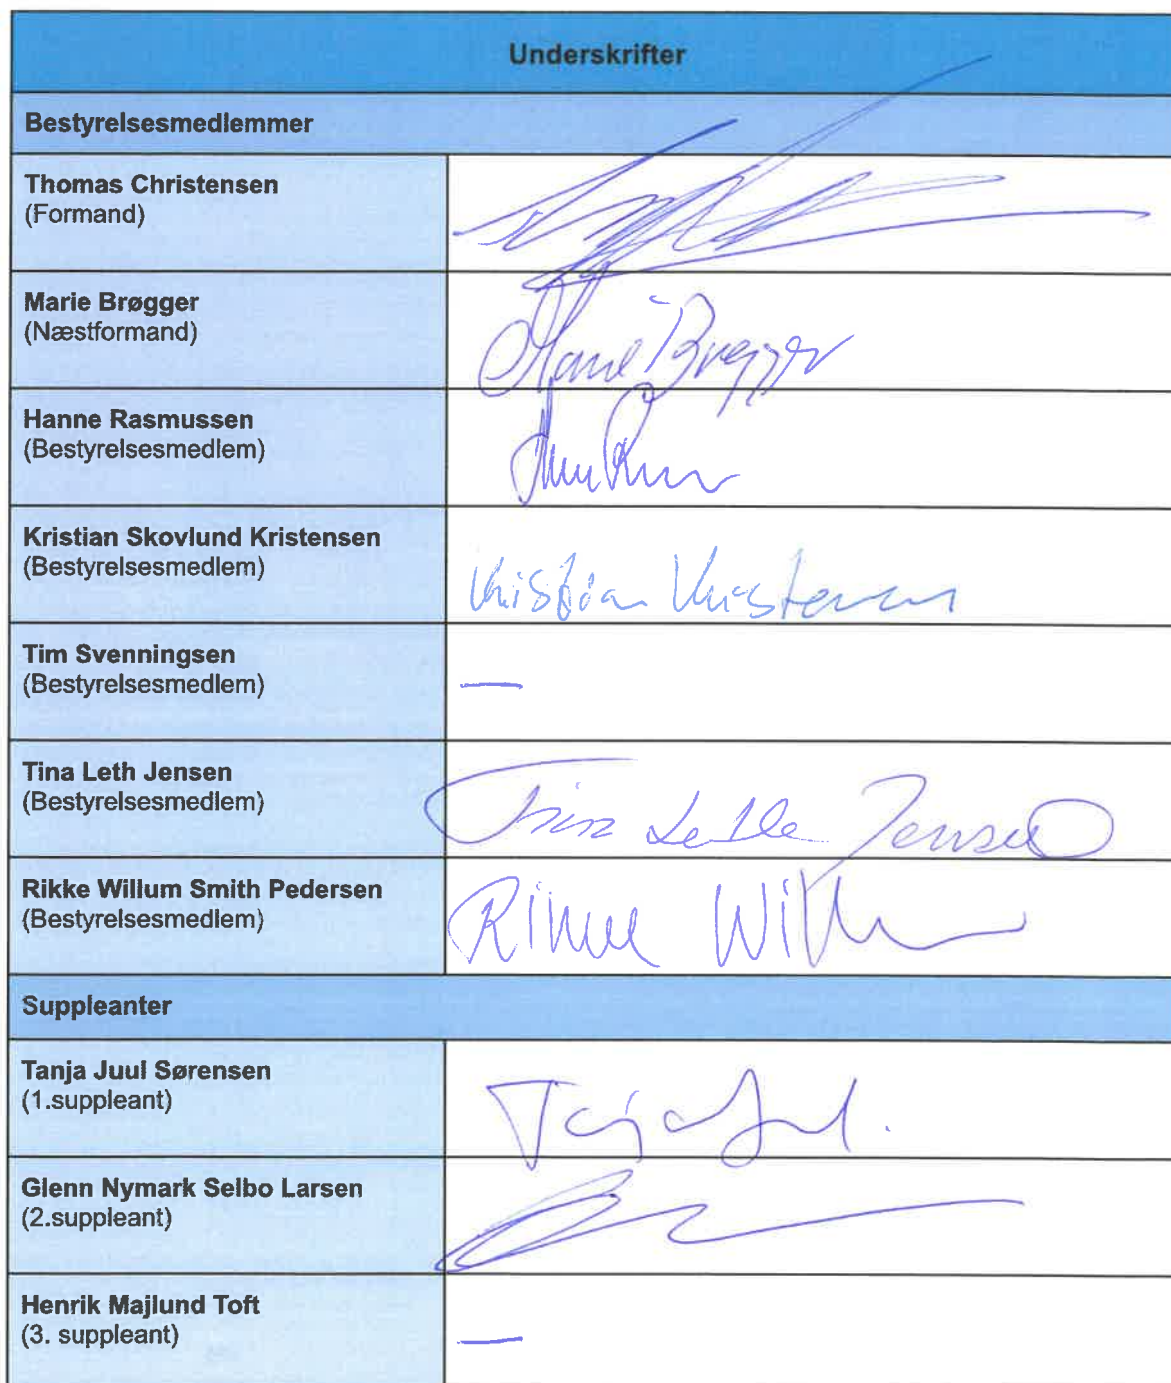 Underskrifter
Bestyrelsesmedlemmer
Thomas Christensen
(Formand)
Marie Brøgger
(Næstformand)
Marie Brøgger
Hanne Rasmussen
(Bestyrelsesmedlem)
Kristian Skovlund Kristensen
(Bestyrelsesmedlem)
Kristian Kristensen
Tim Svenningsen
(Bestyrelsesmedlem)
—
Tina Leth Jensen
(Bestyrelsesmedlem)
Tina Leth Jensen
Rikke Willum Smith Pedersen
(Bestyrelsesmedlem)
Rikke
Suppleanter
Tanja Juul Sørensen
(1.suppleant)
Tanja Juul.
Glenn Nymark Selbo Larsen
(2.suppleant)
Henrik Majlund Toft
(3. suppleant)
—